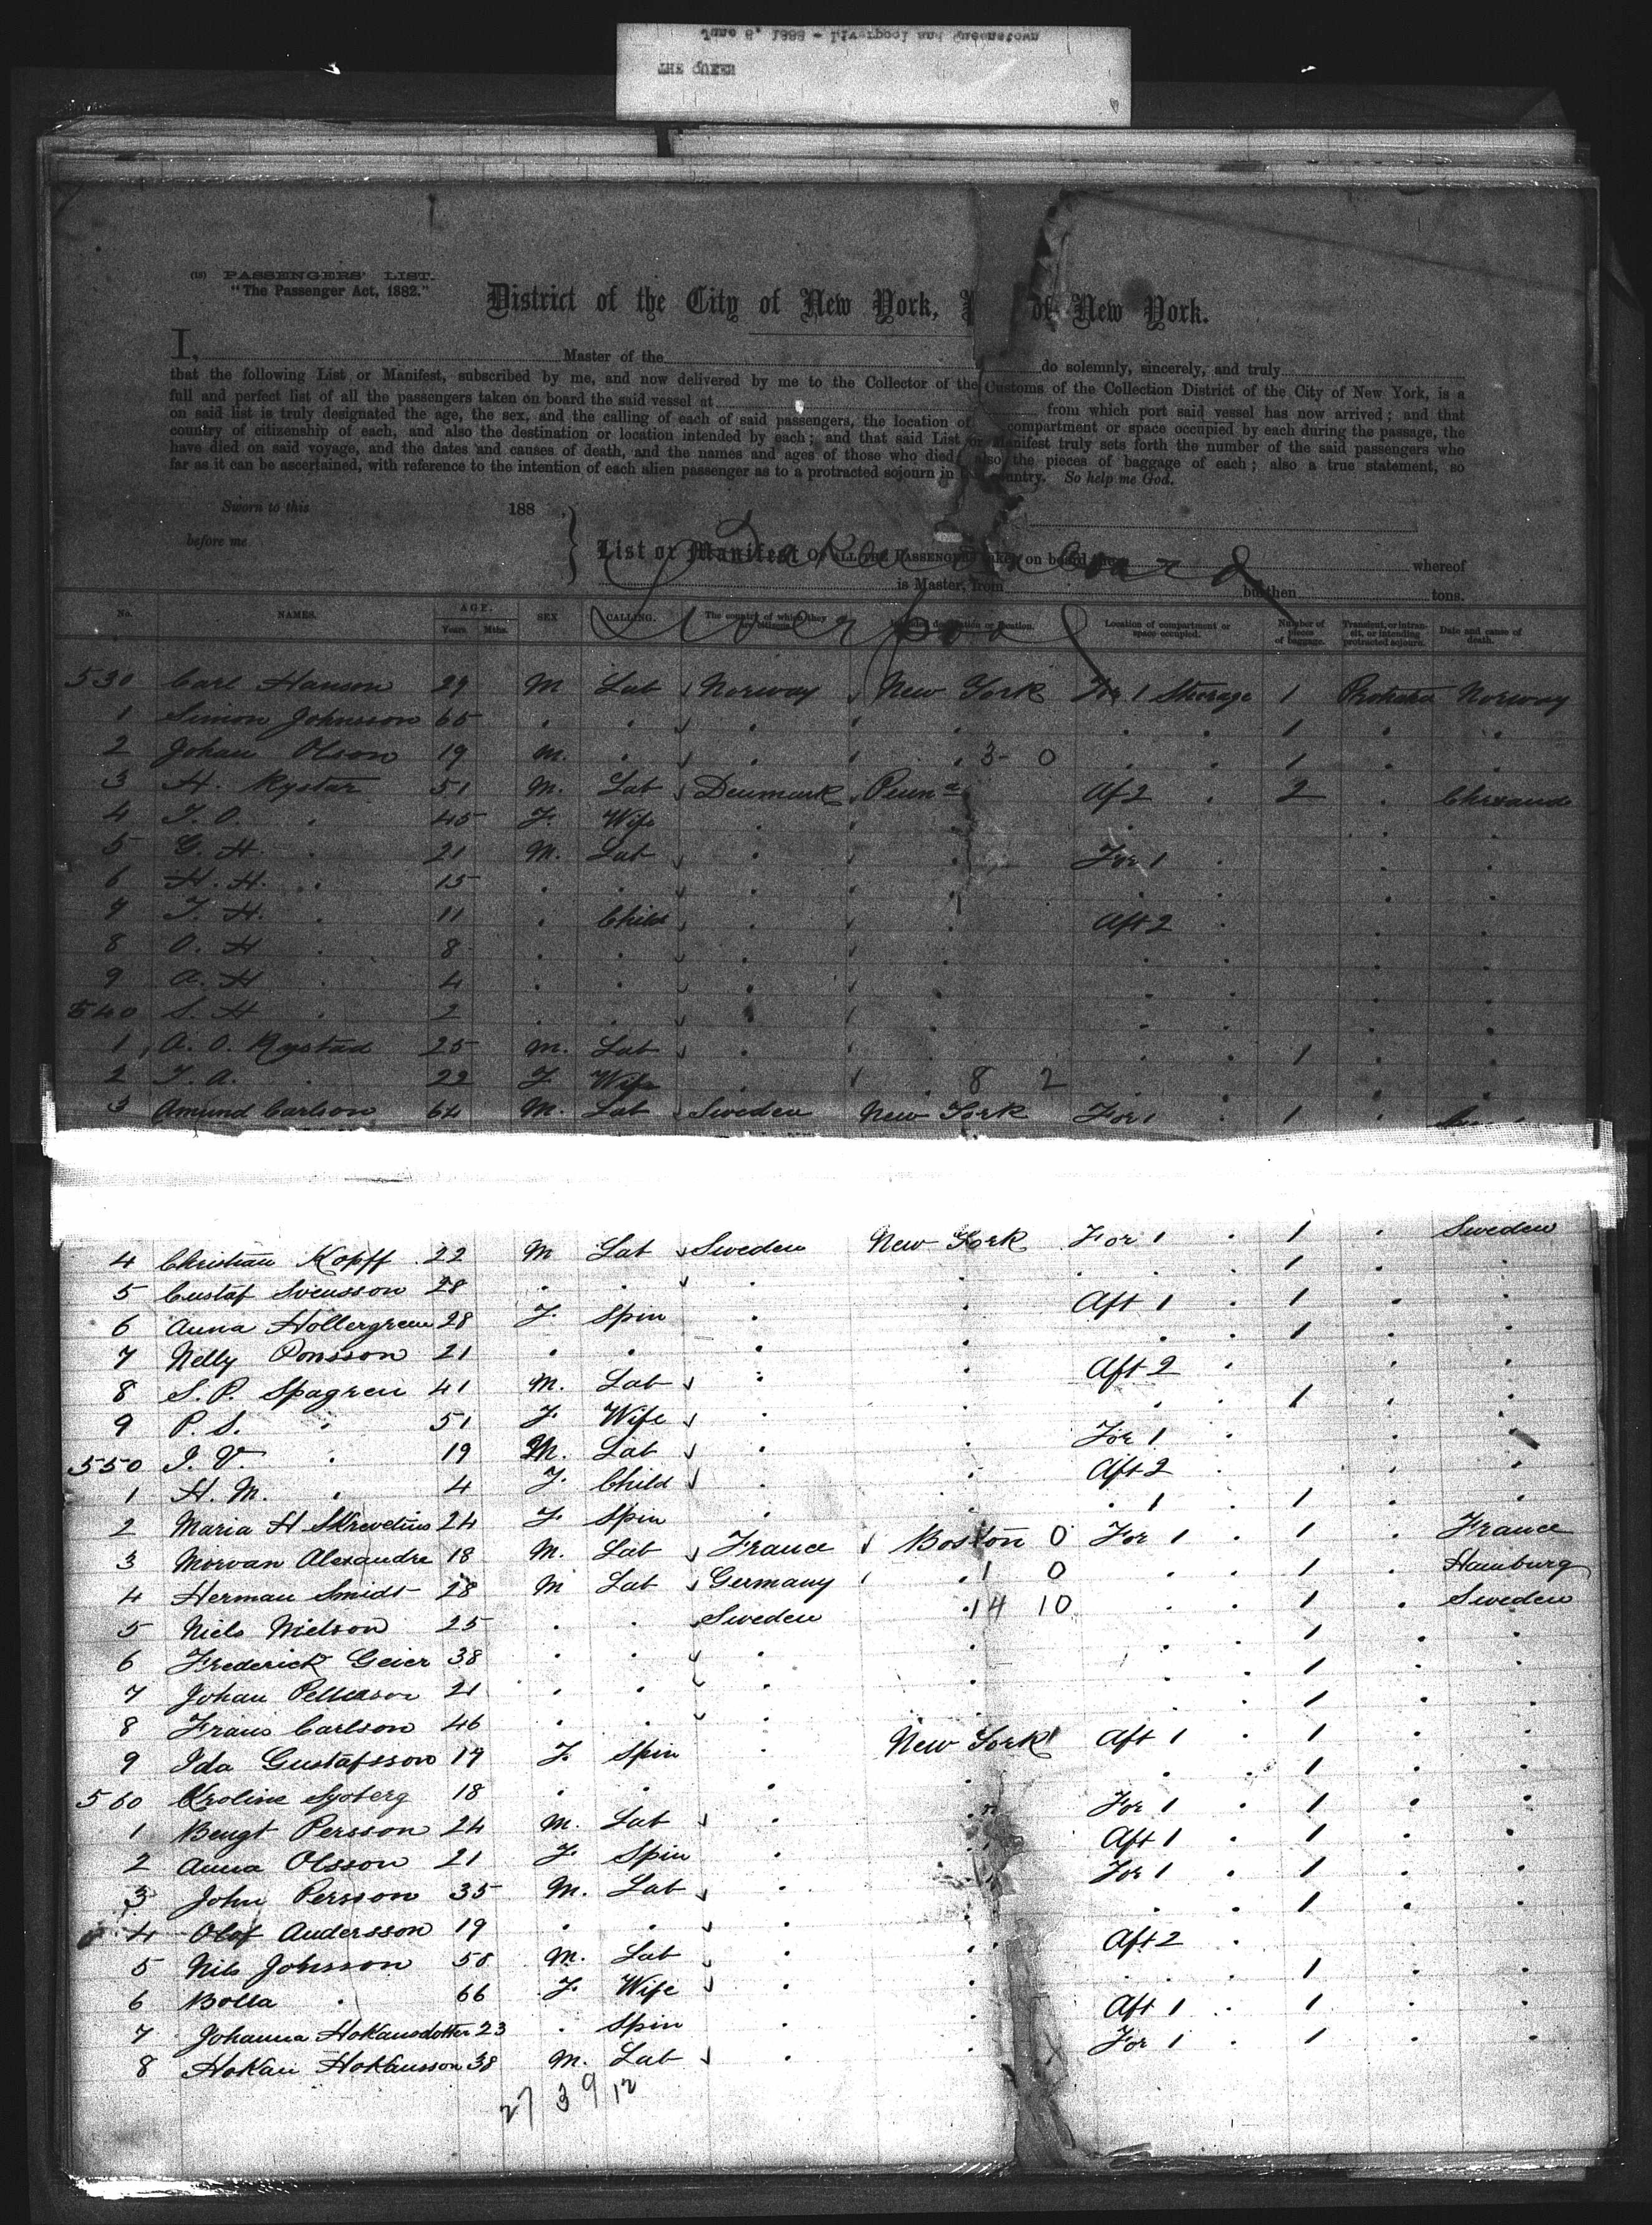 June 8, 1888 - Liverpool and Queenstown
THE QUEEN
(18) PASSENGERS' LIST.
"The Passenger Act, 1882."
District of the City of New York, P of New York.
I, Master of the do solemnly, sincerely, and truly
that the following List or Manifest, subscribed by me, and now delivered by me to the Collector of the Customs of the Collection District of the City of New York, is a
full and perfect list of all the passengers taken on board the said vessel at from which port said vessel has now arrived; and that
on said list is truly designated the age, the sex, and the calling of each of said passengers, the location of compartment or space occupied by each during the passage, the
country of citizenship of each, and also the destination or location intended by each; and that said List or Manifest truly sets forth the number of the said passengers who
have died on said voyage, and the dates and causes of death, and the names and ages of those who died; also the pieces of baggage of each; also a true statement, so
far as it can be ascertained, with reference to the intention of each alien passenger as to a protracted sojourn in this country. So help me God.
Sworn to this 188
before me
List or Manifest OF ALL THE PASSENGERS taken on board the whereof
Taken on board
is Master, from burthen tons.
Liverpool
No. NAMES. AGE. Years Mths. SEX CALLING. The country of which they are citizens. Intended destination or location. Location of compartment or space occupied. Number of pieces of baggage. Transient, or in transit, or intending protracted sojourn. Date and cause of death.
530 Carl Hanson 29 M Lab Norway New York For 1 Steerage 1 Norway
1 Simon Johnsson 65 . . . . . . 1 . .
2 Johan Olson 19 M. . . . 3 0 . . 1 . .
3 H. Rystar 51 M. Lab Denmark Penna Af 2 . 2 .
4 T. O. . 45 F. Wife . . . . .
5 G. H. . 21 M. Lab . . For 1 . . .
6 H. H. . 15 . . . . . . .
7 T. H. . 11 . Child . . Aft 2 . . .
8 O. H . 8 . . . . . . .
9 A. H . 4 . . . . . . .
540 S. H . 2 . . . . . . .
1 A. O. Rystad 25 M. Lab . . . . 1 . .
2 T. A. . 22 F. Wife . . 8 2 . . .
3 Amund Carlson 64 M. Lab Sweden New York For 1 . 1 .
4 Christian Kopff 22 M Lab Sweden New York For 1 . 1 . Sweden
5 Gustaf Svensson 28 . . . . . . 1 . .
6 Anna Hollergreen 28 F. Spin . . Aft 1 . 1 . .
7 Nelly Ponsson 21 . . . . . . 1 . .
8 S. P. Spagren 41 M. Lab . . Aft 2 . . .
9 P. S. . 51 F. Wife . . . . 1 . .
550 J. V. . 19 M. Lab . . For 1 . .
1 H. M. . 4 F. Child . . Aft 2 . . .
2 Maria H 24 F. Spin . . . 1 . 1 . .
3 Morvan Alexandre 18 M. Lab France Boston 0 For 1 . 1 . France
4 Herman Smidt 28 M Lab Germany . 1 0 . . 1 . Hamburg
5 Niels Nielson 25 . . Sweden . 14 10 . . 1 . Sweden
6 Frederick Geier 38 . . . . . . 1 . .
7 Johan Petterson 21 . . . . . . 1 . .
8 Frans Carlson 46 . . . . . . 1 . .
9 Ida Gustafsson 19 F. Spin . New York Aft 1 . 1 . .
560 Kroline Sjoberg 18 . . . . . . 1 . .
1 Bengt Persson 24 M. Lab . . For 1 . 1 . .
2 Anna Olsson 21 F. Spin . . Aft 1 . 1 . .
3 John Persson 35 M. Lab . . For 1 . 1 . .
4 Olof Andersson 19 . . . . . . 1 . .
5 Nils Johnson 58 M. Lab . . Aft 2 .
6 Bolla . 66 F. Wife . . . . 1 . .
7 Johanna Hokansdotter 23 . Spin . Aft 1 . 1 . .
8 Hokan Hokansson 38 M. Lab . . For 1 . 1 . .
27 3 9 12